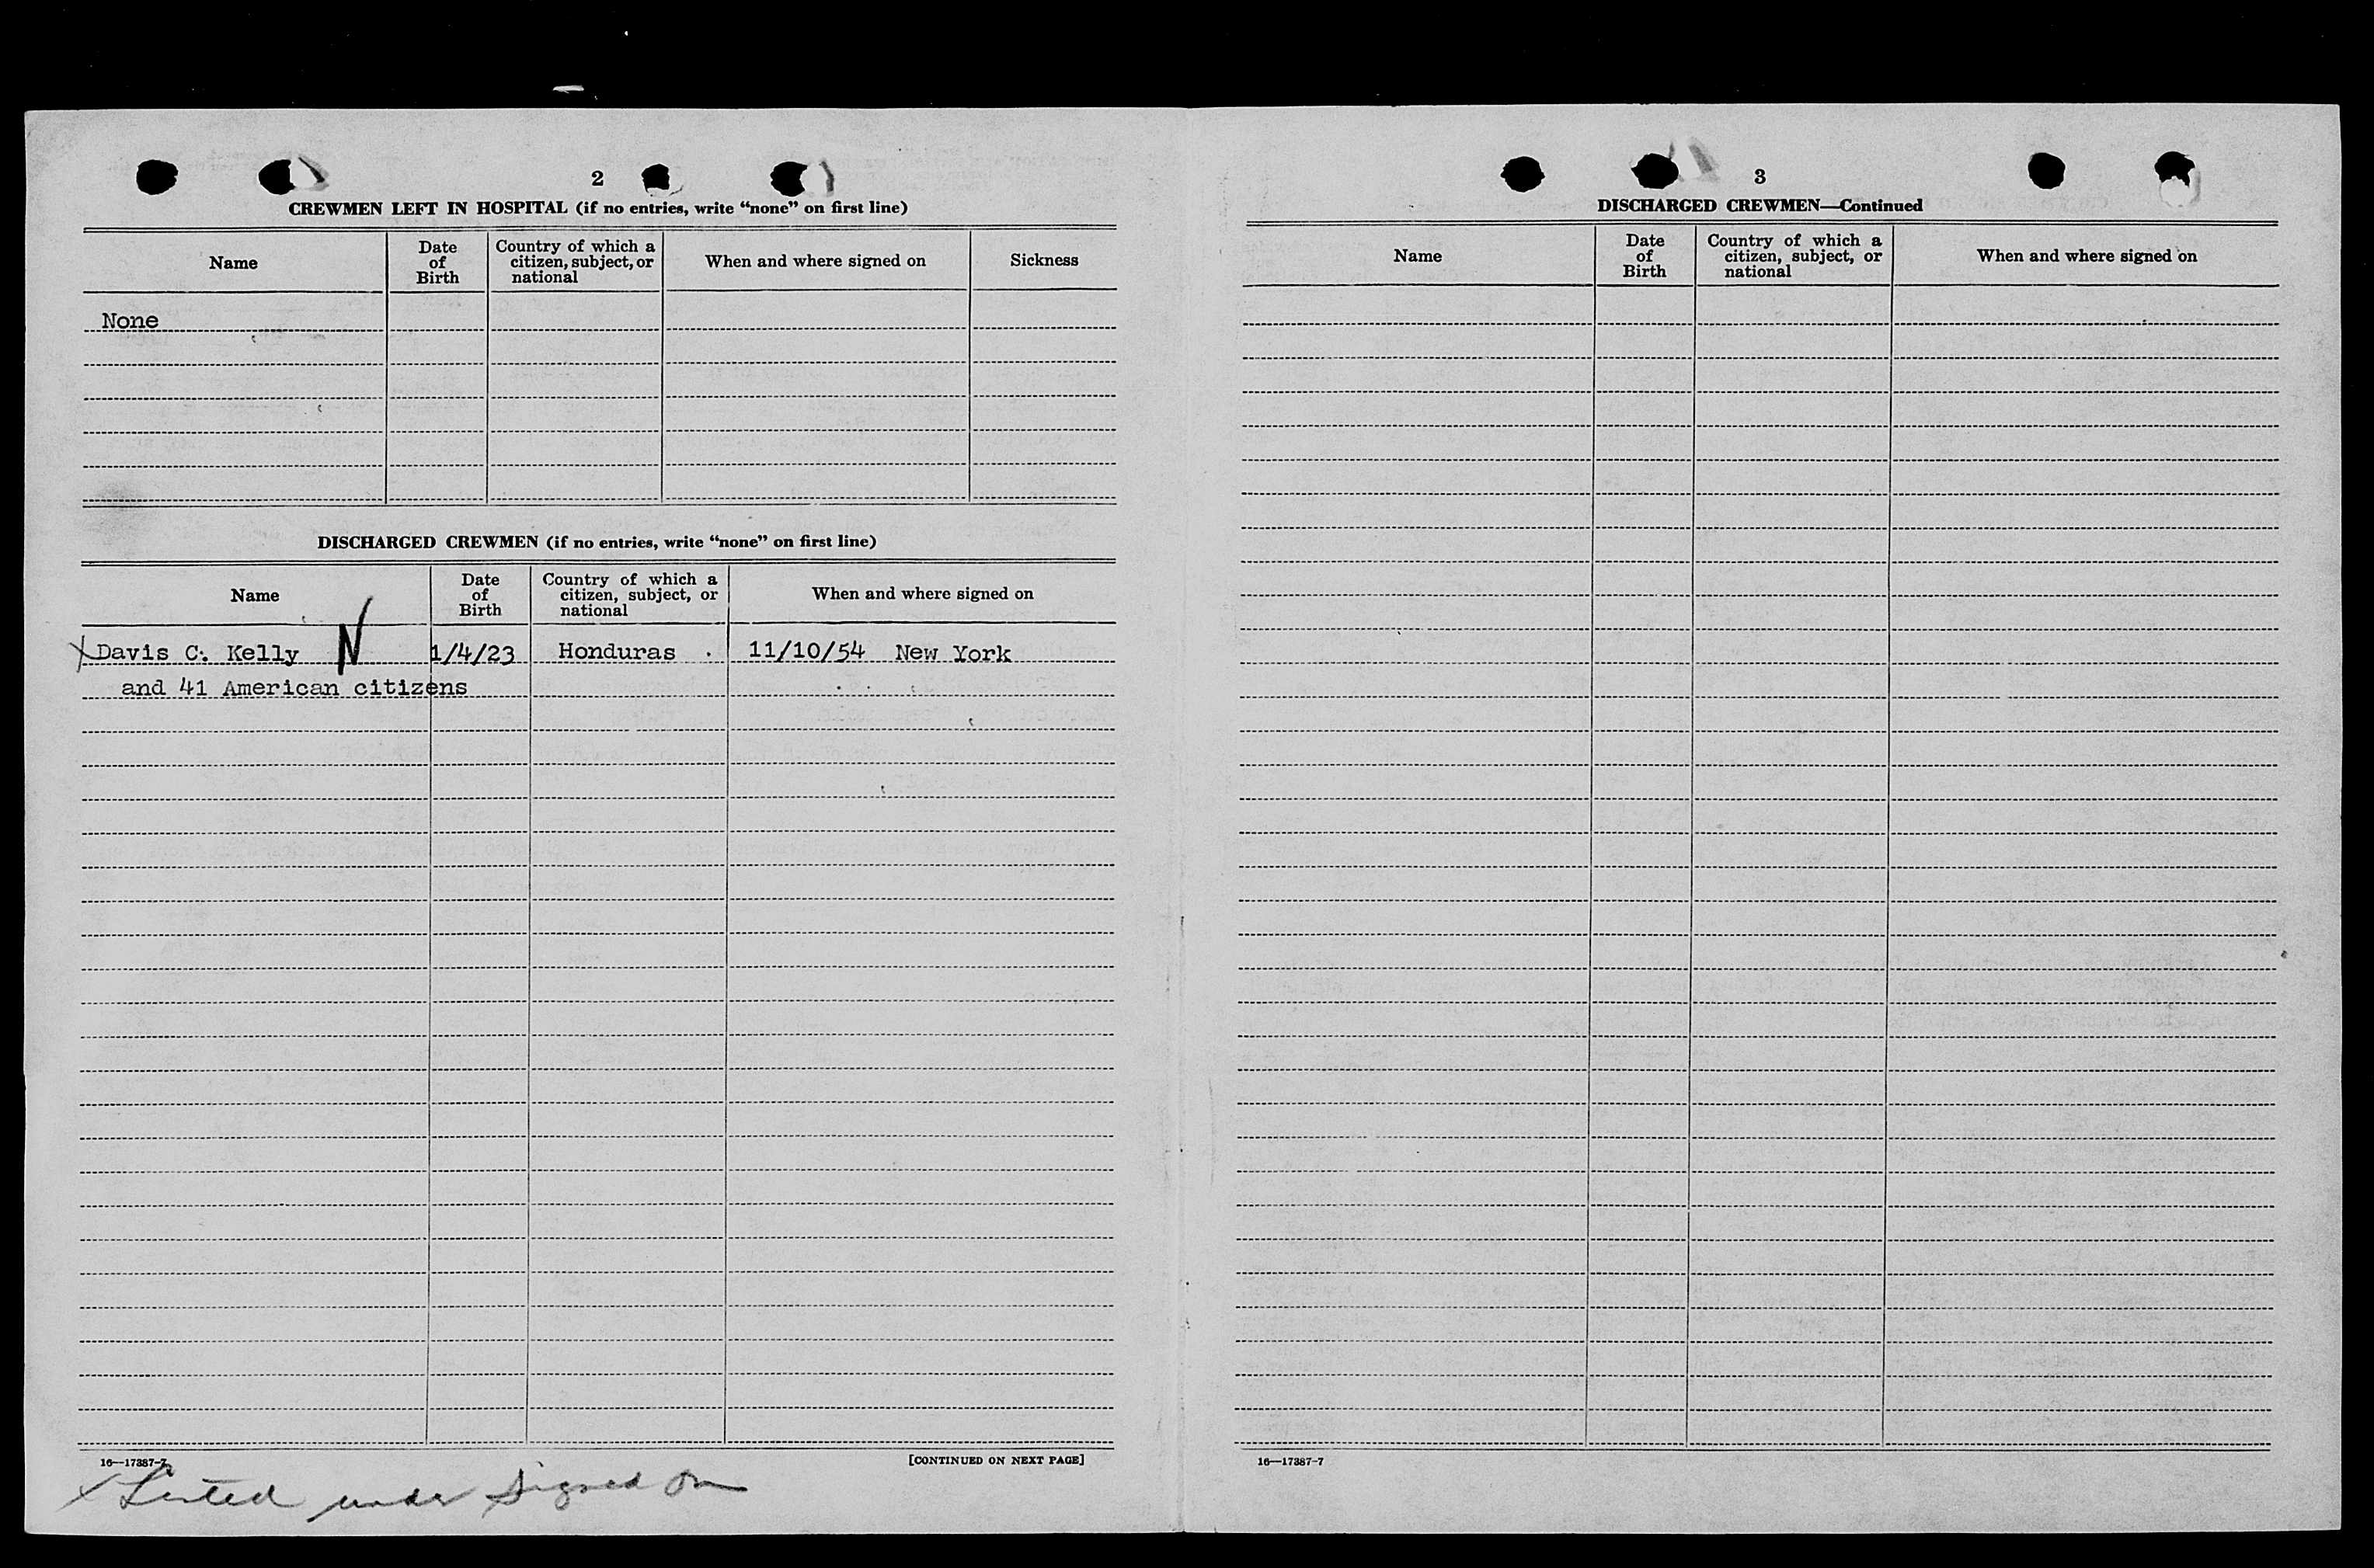 2
CREWMEN LEFT IN HOSPITAL (if no entries, write “none” on first line)
Name
Date of Birth
Country of which a citizen, subject, or national
When and where signed on
Sickness
None
DISCHARGED CREWMEN (if no entries, write “none” on first line)
Name
Date of Birth
Country of which a citizen, subject, or national
When and where signed on
X Davis C. Kelly N 1/4/23 Honduras 11/10/54 New York
and 41 American citizens
16—17387-7
[CONTINUED ON NEXT PAGE]
X Listed under Signed On
3
DISCHARGED CREWMEN—Continued
Name
Date of Birth
Country of which a citizen, subject, or national
When and where signed on
16—17387-7